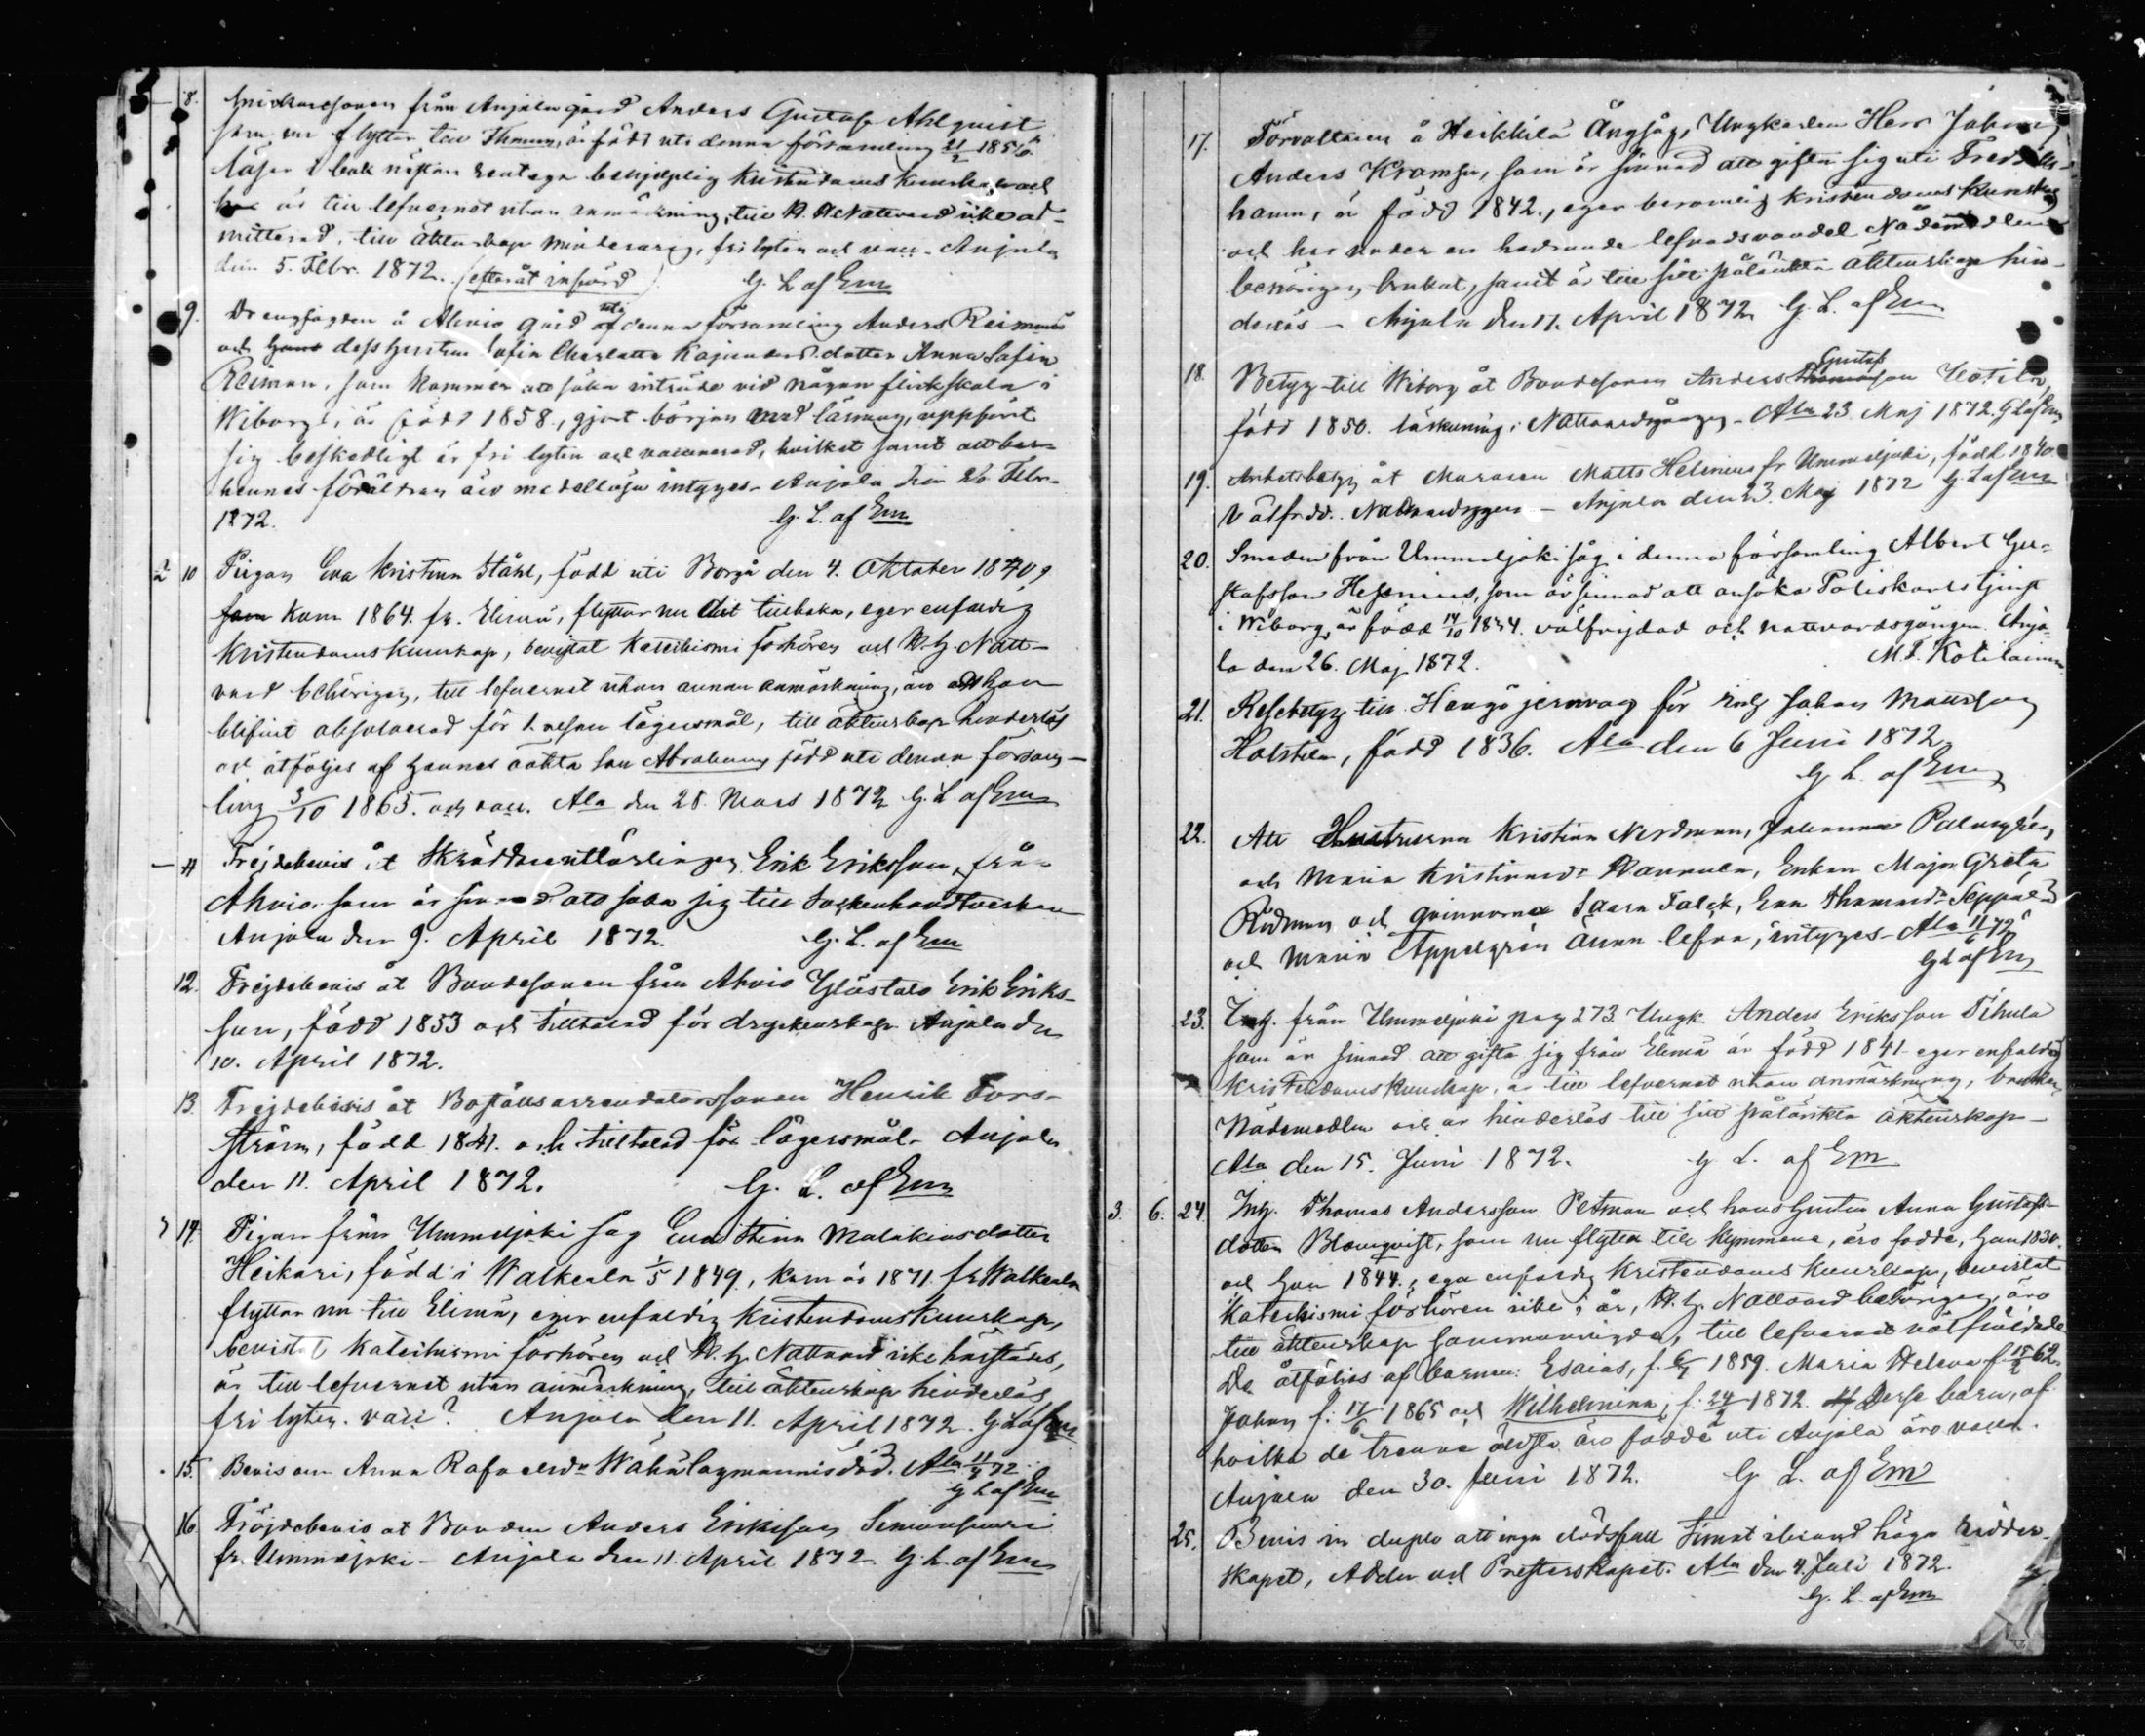 8. från Anjala gård Anders Gustaf Ahlqvist
som nu flyttar till är född uti denna församling 21/2 1856.
läser i bok nästan rent ega kristendoms kunskap och
är till lefvernet utan anmärkning, till H. H. Nattvard icke ad-
mitterad, till äktenskap minderårig, fri lyten och vacc. Anjala
den 5. Febr. 1872. (efteråt införd) G. L. af Em
9. Drengfogden å Ahvio gård uti denna församling Anders Reimans
och hans dess hustrus Sofia Charlotta Kajanders dotter Anna Sofia
Reiman, som kommer att söka inträde vid någon flickskola i
Wiborg, är född 1858, gjort början med läsning, uppfört
sig beskedligt är fri lyten och vaccinerad, hvilket samt att
hennes föräldrar äro medellösa intyges. Anjala den 26 Febr.
1872. G. L. af Em
2 10 Pigan Eva Kristina Ståhl, född uti Borgå den 4. Oktober
som kom 1864. fr. Elimä, flyttar nu dit tillbaka, eger enfaldig
kristendomskunskap, bevistat Katechismi förhören och H. H. Natt-
vard behörigen, till lefvernet utan annan anmärkning, än att hon
blifvit absolverad för 1. resan lägersmål, till äktenskap hinderlös
och åtföljes af hennes oäkta son Abraham född uti denna försam-
ling 3/10 1865. och vacc. Ala den 28 Mars 1872 G. L. af Em
11 Frejdebevis åt Skräddarentlärlingen Erik Eriksson från
Ahvio som är sinnad att söka sig till Sockenhandtverkare
Anjala den 9. April 1872. G. L. af Em
12. Frejdebevis åt Bondesonen från Ahvio Yliistalo Erik Eriks-
son, född 1853 och tilltalad för dryckenskap Anjala den
10. April 1872.
13. Frejdebevis åt Boställsarrendatorssonen Henrik Fors-
ström, född 1841. och tilltalad för lägersmål. Anjala
den 11. April 1872. G. L. af Em
14. Pigan från Ummeljoki såg Eva Stina Malakiasdotter
Heikari, född i Walkeala 1/5 1849, kom år 1871. fr Walkeala
flyttar nu till Elimä, eger enfaldig kristendomskunskap,
bevistat Katechismi förhören och H. H. Nattvard icke härstädes,
är till lefvernet utan anmärkning, till äktenskap hinderlös
fri lyten. vacc? Anjala den 11. April 1872. G L af Em
15. Bevis om Anna Rafaelsdr död. Ala 11/4 72.
G L af Em
16. Fröjdebevis åt Bonden Anders Eriksson
fr. Ummeljoki - Anjala den 11. April 1872. G. L. af Em
17. Förvaltaren å Heikkilä Ångsåg, Ungkarlen Herr Johan
Anders Kramsu, som är sinnad att gifta sig uti Fredriks-
hamn, är född 1842, eger berömlig kristendoms kunskap
och har under en hedrande lefnadsvandel Nådemedlen
behörigen brukat, samt är till sitt påtänkta äktenskap hin-
derlös - Anjala den 17. April 1872 G. L. af Em
18. Betyg till Wiborg åt Bondesonen Anders Gustaf Thomasson
född 1850. läskunnig. Nattvardsgången. Ala 23 Maj 1872. G L af Em
19. Arbetsbetyg åt Muraren Matts Helenius fr Ummeljoki, född 1840
Välfr. Nattvardsgången - Anjala den 23. Maj 1872 G L af Em
20. Smeden från Ummeljoki såg i denna församling Albert Gu-
stafsson Helenius, som är sinnad att ansöka Poliskarls tjenst
i Wiborg, är född 14/10 välfrejdad och nattvardsgången. Anja-
la den 26. Maj 1872. M. L. Kotilainen
21. Resebetyg till Hangö jernväg för Johan Mattsson
född 1836. Ala den 6 Juni 1872
G. L. af Em
22. Att Hustrurna Kristina Nordman, Johanna
och Maria Kristina Enkan Maja Greta
och qvinnorna Saara Falck, Eva Thomasdr Seppälä
och Maria Appelgrén ännu lefva, intyges - Ala 11/6 72
G L af Em
23. Inh. från Ummeljoki pag 273. Ungk Anders Eriksson Tihula
som är sinnad att gifta sig från Elimä är född 1841 eger enfaldig
kristendomskunskap, är till lefvernet utan anmärkning, brukar
Nådemedlen och är hinderlös till sitt påtänkta äktenskap -
Ala den 15. Juni 1872. G. L. af Em
3. 6. 24. Inh. Thomas Andersson Petman och hans hustru Anna Gustafs-
dotter Blomqvist, som nu flytta till Kymmene, äro födda, han 1830.
och hon 1844., ega enfaldig kristendoms kunskap, bevistat
Katechismi förhören icke i år, H. H. Nattvard behörigen, äro
till äktenskap sammanvigda, till lefvernet välfräjdade
De åtföljas af barnen: Esaias, f. 6/1 1859. Maria Helena f 15/2 62.
Johan f. 17/6 1865 och Wilhelmina, f: 24/2 1872. Desse barn, af
hvilka de trenne äldsta äro födde uti Anjala äro vacc.
Anjala den 30. Juni 1872. G. L. af Em
25. Bevis in duplo att inga dödsfall timat ibland höga Ridder-
skapet, Adeln och Presterskapet. Ala den 4. Juli 1872.
G. L. af Em